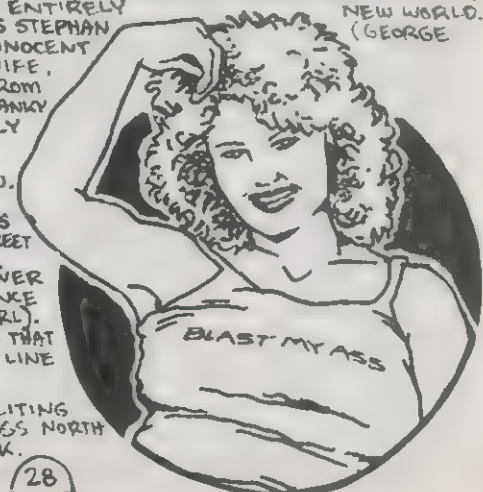 ENTIRELY
STEPHAN
NNOCENT
IFE.
ROM
ANKY
LY
U.
S
REET
VER
NCE
RL).
THAT
LINE
LITING
SS NORTH
K.
28
NEW WORLD.
(GEORGE
BLAST MY ASS